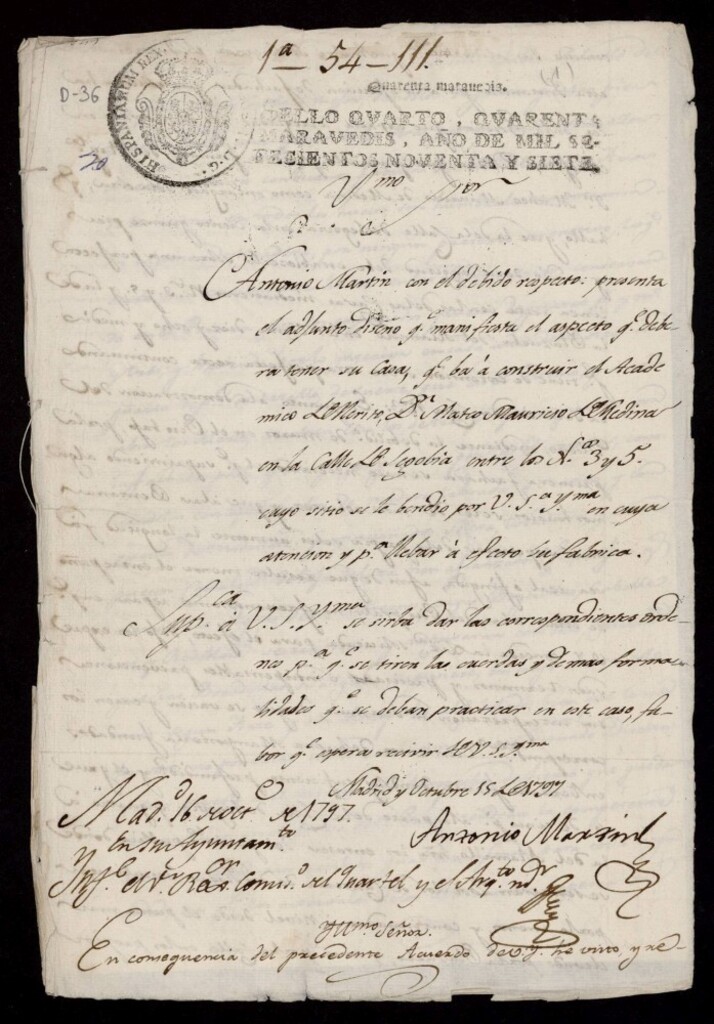 1ª 54-111.
D-36
HISPANIARUM REX
D.G.
Quarenta maravedis.
SELLO QVARTO, QVARENTA
MARAVEDIS, AÑO DE MIL SE-
TECIENTOS NOVENTA Y SIETE.
20
Yᵐᵒ Sᵒʳ
Antonio Martin con el debido respecto: presenta
el adjunto diseño qᵉ manifiesta el aspecto qᵉ debe-
ra tener su Casa, qᵉ ba à construir el Acade
mico de Merito, Dⁿ Mateo Mauricio de Medina
en la Calle de Segobia entre los Nᵒˢ 3 y 5.
cuyo sitio se le bendio por V. S. Yᵐᵃ en cuya
atencion y pᵃ llebar à efecto su fabrica.
Suppᶜᵃ à V. S. Yᵐᵃ se sirba dar las correspondientes orde-
nes pᵃ qᵉ se tiren las cuerdas y demas forma-
lidades qᵉ se deban practicar en este caso, fa-
bor qᵉ espera recivir de V. S. Yᵐᵃ
Madrid y Octubre 15 de 1797
Madᵈ 16 de octᵉ de 1797.
Antonio Martin
En su Ayuntamᵗᵒ
Ynfᵉ el Sʳ Regᵒʳ Comisᵒ del quartel y el Arqᵗᵒ mʳ
Yllmo Señor.
En consequencia del precedente Acuerdo de V. Y. he visto, y re-